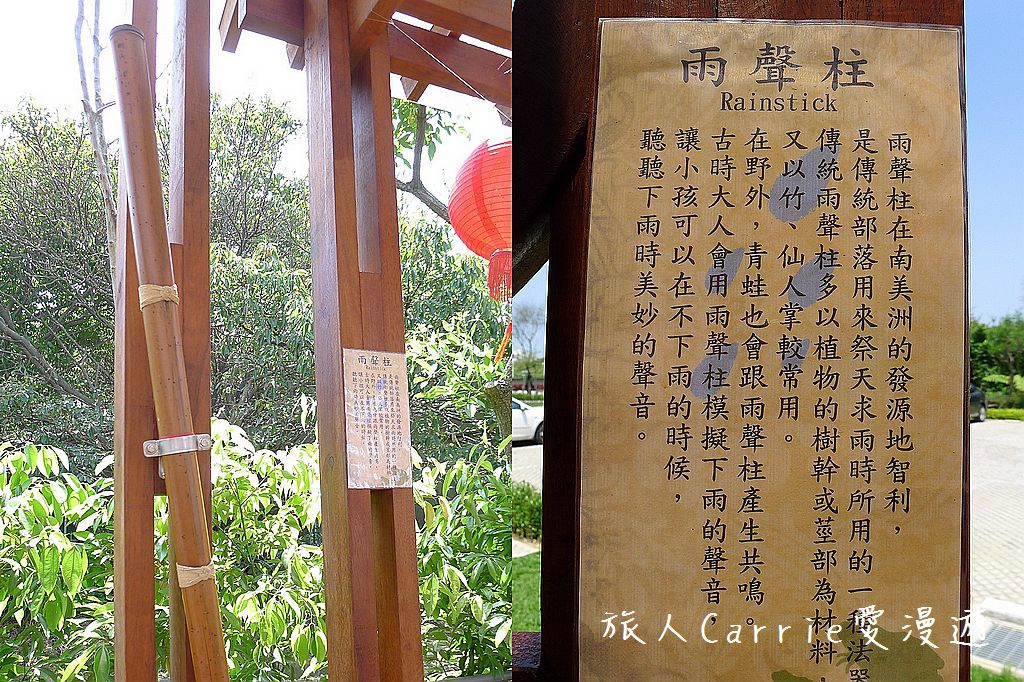 雨聲柱
Rainstick
雨聲柱在南美洲的發源地智利，
是傳統部落用來祭天求雨時所用的一種法器
傳統雨聲柱多以植物的樹幹或莖部為材料，
又以竹、仙人掌較常用。
在野外，青蛙也會跟雨聲柱產生共鳴。
古時大人會用雨聲柱模擬下雨的聲音，
讓小孩可以在不下雨的時候，
聽聽下雨時美妙的聲音。
雨聲柱
Rainstick
旅人Carrie愛漫遊